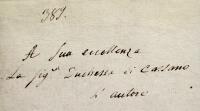 389.
A Sua eccellenza
La Sig.ª Duchessa di Cassano
L'autore